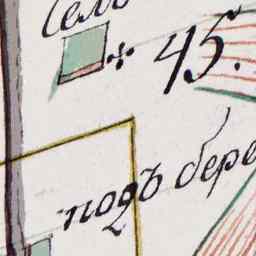 Село
45.
подъ бере
2